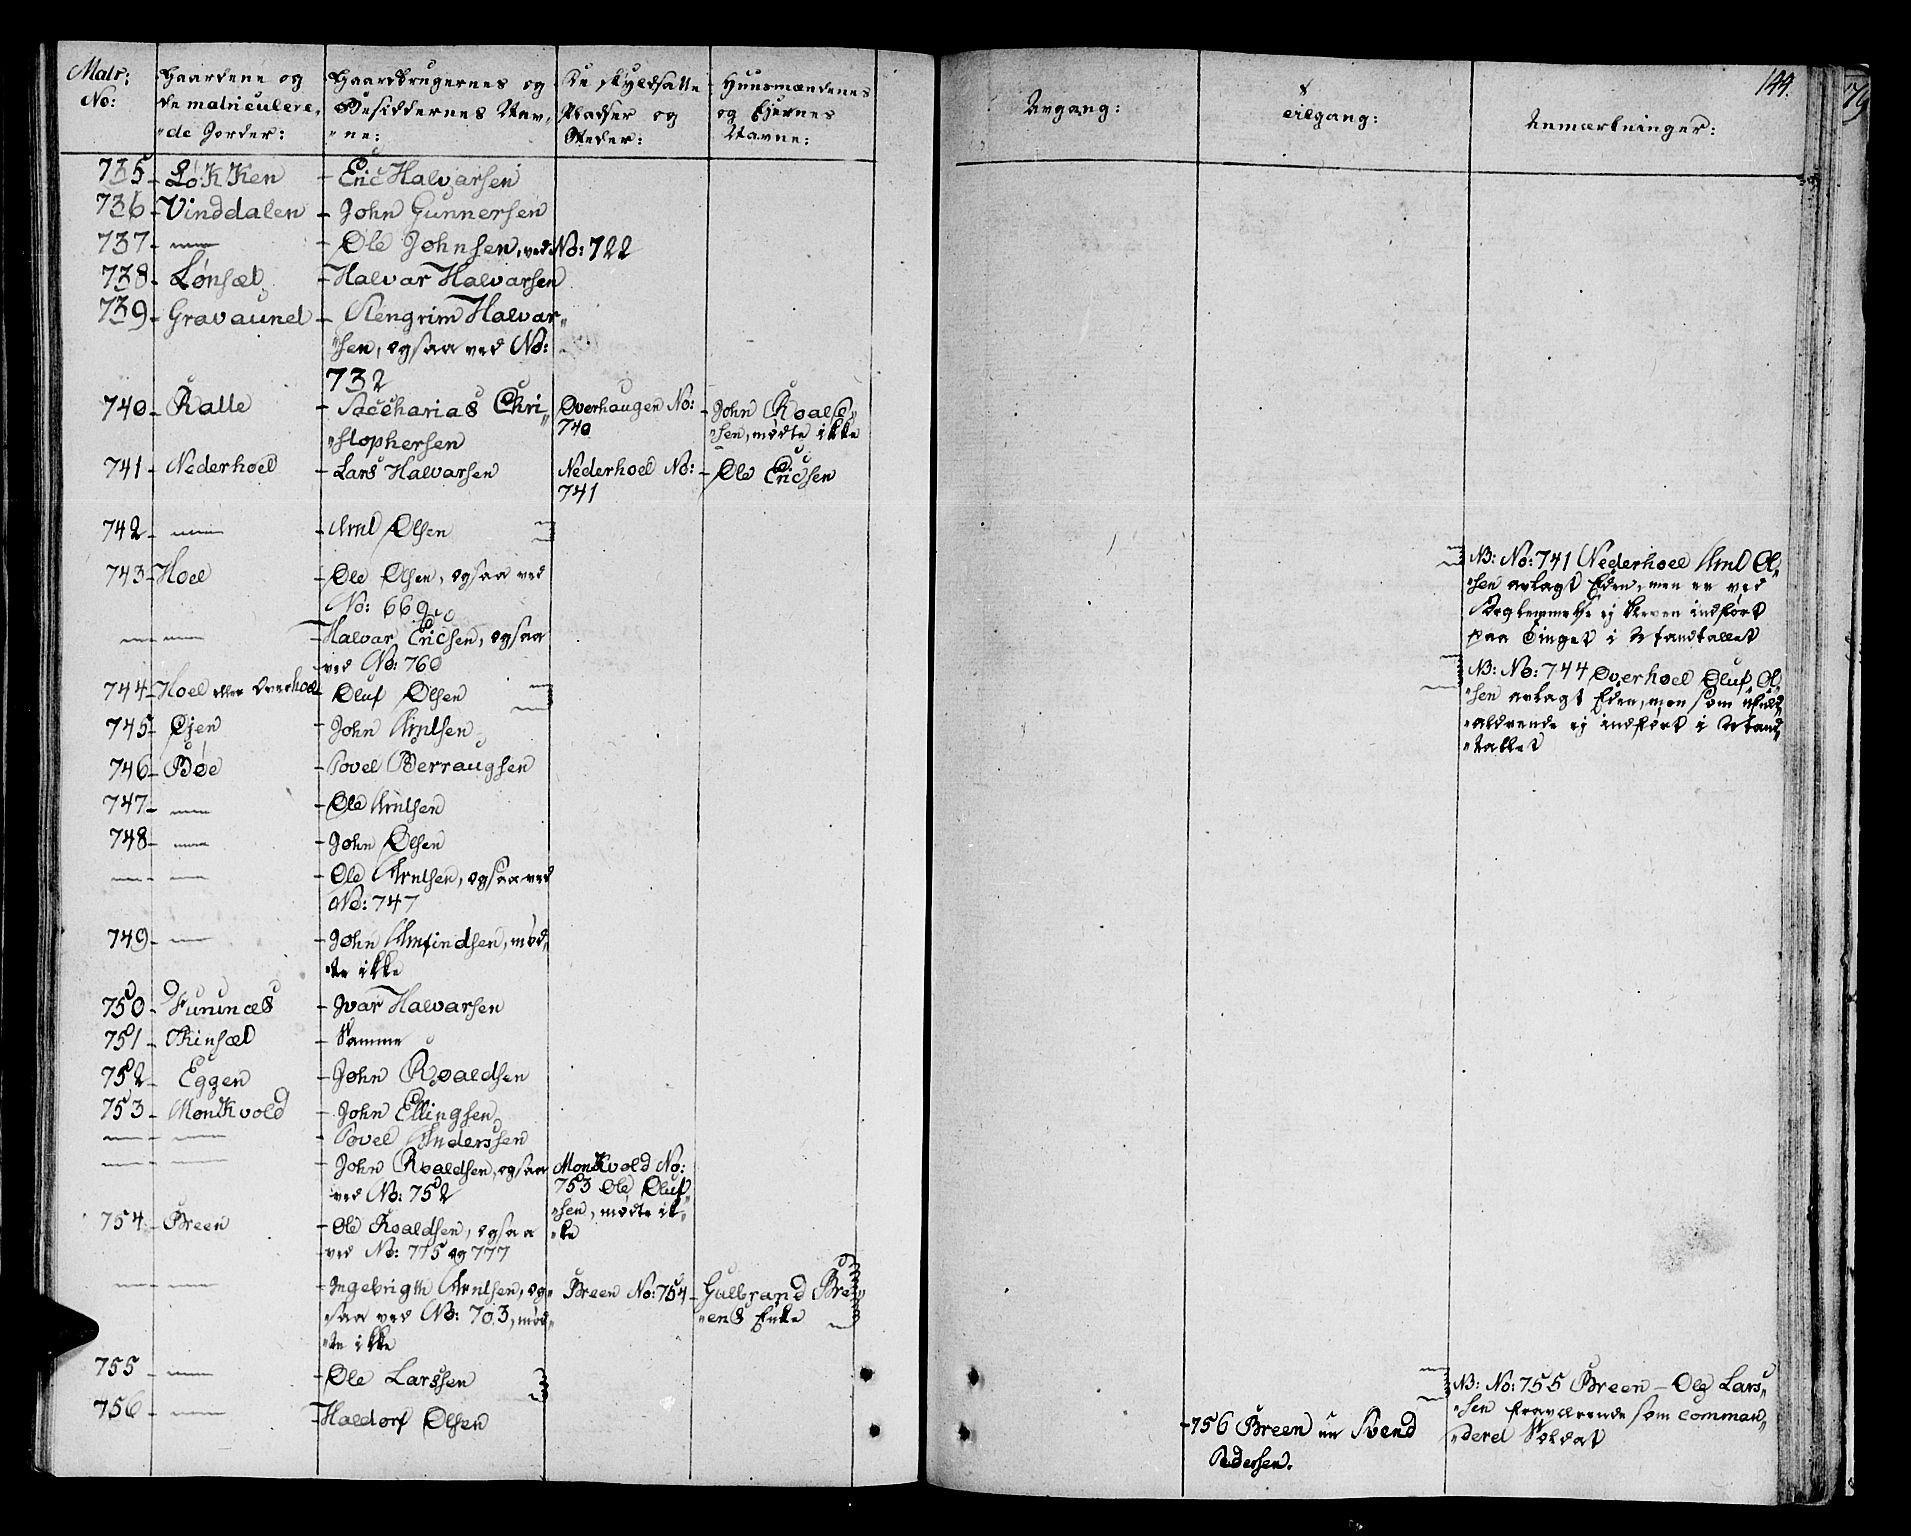 Matr: No:
Gaardene og de matriculere,
"de Jorder:
Gaardbrugernes og Besiddernes Nav,
"ne:
De skyldsatte Pladser og Steder:
Huusmændenes og Ejernes Navne:
Avgang:
Tilgang:
Anmærkninger:
144.
735 - Løkken - Eric Halvarsen
736 - Vinddalen - John Gunnersen
737 - — - Ole Johnsen, ved No: 722
738 - Lønsæt - Halvar Halvarsen
739 - Gravaunet - Stengrim Halvar"
"sen, ogsaa ved No:
732
740 - Kalle - Saccharias Chri"
"stophersen
Overhaugen No: 740 - John Roals"
"sen, mødte ikke
741 - Nederhoel - Lars Halvarsen
Nederhoel No: 741 - Ole Ericsen
742 - — - Arnt Olsen
743 - Hoel - Ole Olsen, ogsaa ved
No: 669
— - — - Halvar Ericsen, ogsaa
ved No: 760
744 - Hoel eller Overhoel - Oluf Olsen
745 - Øien - John Arntsen
746 - Bøe - Povel Berraugsen
747 - — - Ole Arntsen
748 - — - John Olsen
— - — - Ole Arntsen, ogsaa ved
No: 747
749 - — - John Arnfindsen, mød"
"te ikke
750 - Furunæs - Ivar Halvarsen
751 - Kinsæt - Samme
752 - Eggen - John Roaldsen
753 - Monkvold - John Ellingsen
— - — - Povel Anderssen
— - — - John Roaldsen, ogsaa
ved No: 752
Monkvold No:
753 Ole Oluf"
"sen, mødte ik"
"ke
754 - Breen - Ole Roaldsen, ogsaa
ved No: 775 og 777
— - — - Ingebrigth Arntsen, og"
"saa ved No: 703, mød"
"te ikke
Breen No: 754 - Gulbrand Bre"
"ens Enke
755 - — - Ole Larssen
756 - — - Haldorf Olsen
NB: No: 741 Nederhoel Arnt Ol"
"sen avlagt Eden, men er ved
Forglemmelse ej bleven indført
paa Tinget i Mandtallet
NB: No: 744 Overhoel Oluf Ol"
"sen avlagt Eden, men som
ej indført i Mand"
"tallet
NB: No: 755 Breen - Ole Lars"
"sen fraværende som comman"
"deret Soldat
-756 Breen nu Svend
Pedersen.